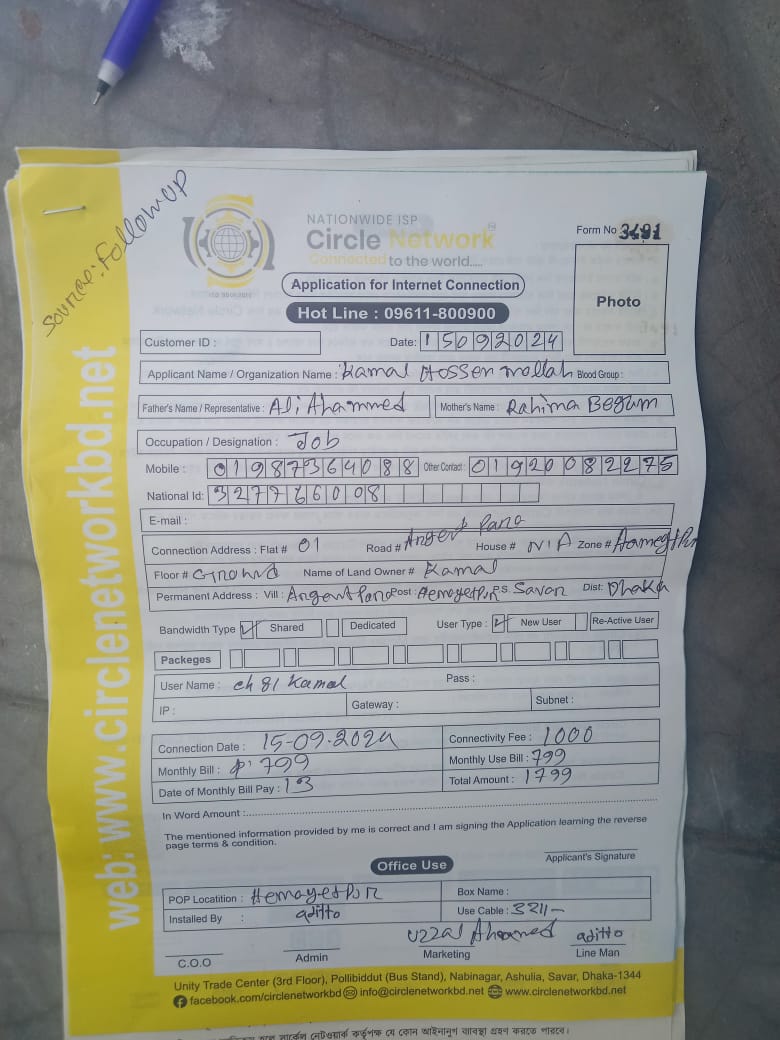 Source: Follow up
NATIONWIDE ISP
Circle Network
Connected to the world.....
Form No 3491
Photo
Application for Internet Connection
Hot Line : 09611-800900
Customer ID :
Date: 15092024
Applicant Name / Organization Name : Kamal Hossen mollah Blood Group :
Father's Name / Representative : Ali Ahammed Mother's Name : Rahima Begum
Occupation / Designation : Job
Mobile : 01987364088 Other Contact : 01920082275
National Id:
E-mail :
Connection Address : Flat # 01 Road # House # N/A Zone #
Floor # Name of Land Owner # Kamal
Permanent Address : Vill : Post : P.S. Savar Dist: Dhaka
Bandwidth Type Shared Dedicated User Type : New User Re-Active User
Packeges
User Name : ch 81 kamal Pass :
IP : Gateway : Subnet :
Connection Date : 15-09-2024 Connectivity Fee : 1000
Monthly Bill : 799 Monthly Use Bill : 799
Date of Monthly Bill Pay : 13 Total Amount : 1799
In Word Amount :
The mentioned information provided by me is correct and I am signing the Application learning the reverse
page terms & condition.
Applicant's Signature
Office Use
POP Locatition : Hemayetpur Box Name :
Installed By : aditto Use Cable :
uzzal Ahammed aditto
C.O.O Admin Marketing Line Man
Unity Trade Center (3rd Floor), Pollibiddut (Bus Stand), Nabinagar, Ashulia, Savar, Dhaka-1344
facebook.com/circlenetworkbd info@circlenetworkbd.net www.circlenetworkbd.net
web: www.circlenetworkbd.net
নেটওয়ার্ক কর্তৃপক্ষ যে কোন আইনানুগ ব্যাবস্থা গ্রহণ করতে পারবে।